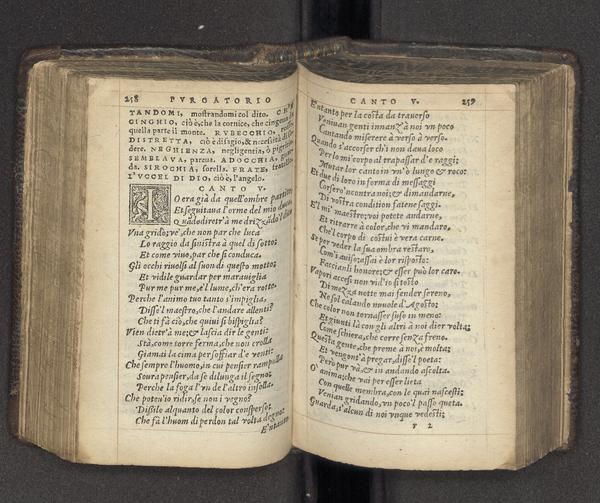 258 PVRGATORIO
TANDOMI, mostrandomi col dito. CHE
CINGHIO, ciò è, che la cornice, che cingeua da
quella parte il monte. RVBECCHIO, rosso.
DISTRETTA, ciò è disagio, & necessità di
dere. NEGHIENZA, negligentia, ò pigritia.
SEMBLAVA, pareua. ADOCCHIA,
da. SIROCHIA, sorella. FRATE, fratello.
L'VCCEL DI DIO, ciò è, l'angelo.
CANTO V.
IO era già da quell'ombre partito,
Et seguitaua l'orme del mio duca,
Quãdo diretr'à me drizzãdo'l dito
Vna gridò; ve', che non par che luca
Lo raggio da sinistra à quel di sotto;
Et come viuo, par che si conduca.
Gli occhi riuolsi al suon di questo motto;
Et vidile guardar per marauiglia
Pur me pur me, e'l lume, ch'era rotto.
Perche l'animo tuo tanto s'impiglia,
Disse'l maestro, che l'andare allenti?
Che ti fà ciò, che quiui si bisbiglia?
Vien dietr'à me; & lascia dir le genti:
Stà, come torre ferma, che non crolla
Giamai la cima per soffiar d'e venti:
Che sempre l'huomo, in cui pensier rampolla
Soura pensier, da se dilunga il segno;
Perche la foga l'vn de l'altro insolla.
Che poteu'io ridir, se non i vegno?
Dissilo alquanto del color consperso;
Che fà l'huom di perdon tal volta degno:
Entanto
CANTO V. 259
Entanto per la costa da trauerso
Veniuan genti innanzi à noi vn poco
Cantando miserere à verso à verso.
Quando s'accorser ch'i non daua loco
Per lo mi'corpo al trapassar d'e raggi;
Mutar lor canto in vn'o lungo & roco:
Et due di loro in forma di messaggi
Corsero'ncontra noi; & dimandarne,
Di vostra condition fatene saggi.
E'l mi' maestro; voi potete andarne,
Et ritrarre à color, che vi mandaro,
Che'l corpo di costui è vera carne.
Se per veder la sua ombra restaro,
Com'i auiso; assai è lor risposto:
Faccianli honore; & esser può lor caro.
Vapori accesi non vid'io si tosto
Di mezza notte mai fender sereno,
Ne sol calando nuuole d'Agosto;
Che color non tornasser suso in meno:
Et giunti là con gli altri à noi dier volta;
Come schiera, che corre senza freno.
Questa gente, che preme à noi, è molta;
Et vengont'à pregar, disse'l poeta:
Però pur và, & in andando ascolta.
O' anima; che vai per esser lieta
Con quelle membra, con le quai nascesti;
Venian gridando, vn poco'l passo queta.
Guarda, s'alcun di noi vnque vedesti;
F 2